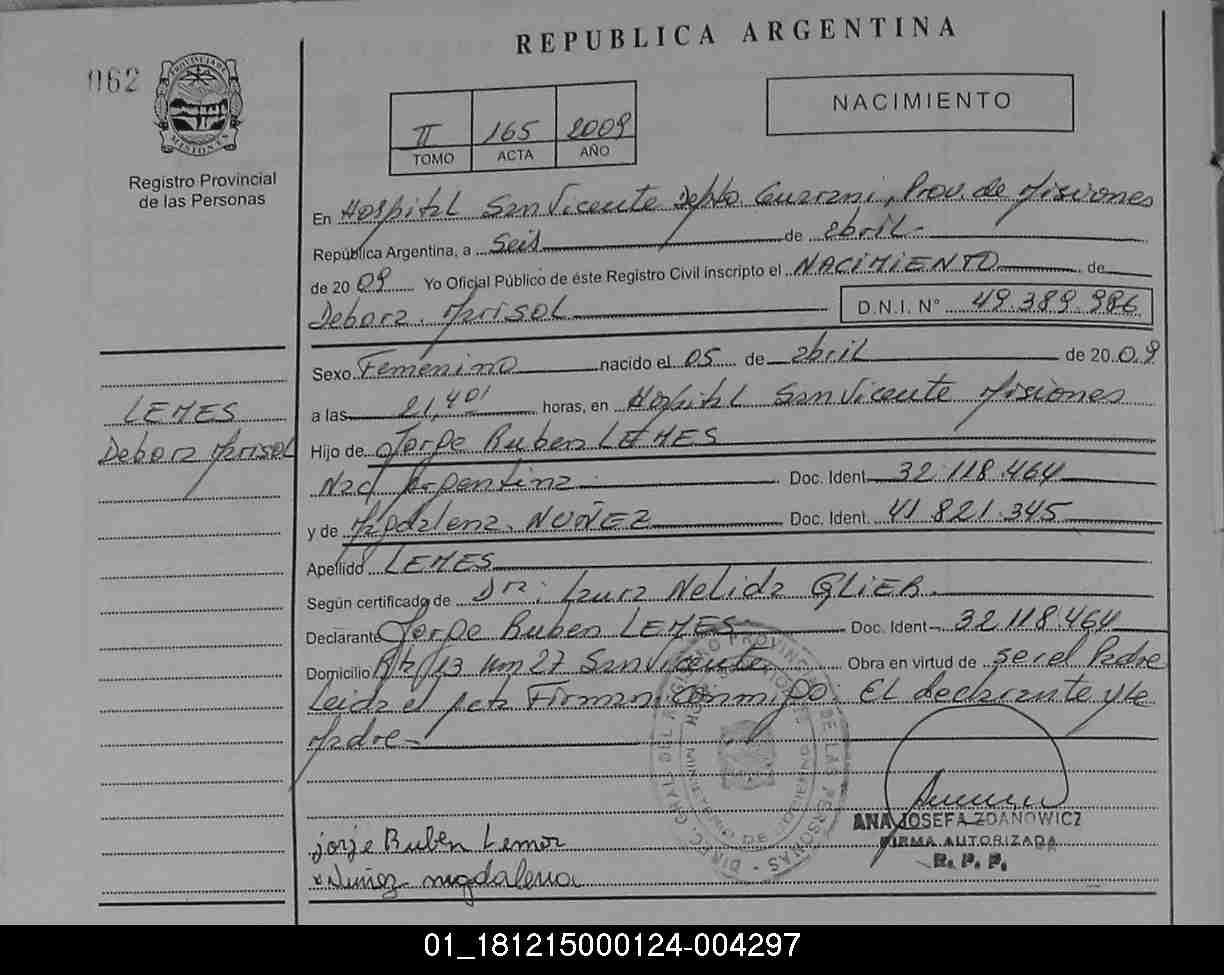 REPUBLICA ARGENTINA
062
PROVINCIA DE
MISIONES
Registro Provincial
de las Personas
II 165 2009
TOMO ACTA AÑO
NACIMIENTO
En Hospital San Vicente Depto Guarani, Prov. de Misiones
República Argentina, a Seis de abril
de 20 09 Yo Oficial Público de éste Registro Civil inscripto el NACIMIENTO de
Debora Marisol D.N.I. N° 49.389.986
Sexo Femenino nacido el 05 de abril de 20 09
a las 21,40' horas, en Hospital San Vicente Misiones
LEMES
Debora Marisol
Hijo de Jorge Ruben LEMES
Nac Argentina Doc. Ident 32.118.464
y de Magdalena NUÑEZ Doc. Ident. 41.821.345
Apellido LEMES
Según certificado de Dra: Laura Nelida GLIER.
Declarante Jorge Ruben LEMES Doc. Ident 32.118.464
Domicilio Rta 13 Km 27 San Vicente Obra en virtud de ser el Padre
Leida el acta Firman conmigo El declarante y la
Madre
DIREC. GRAL. DEL REGISTRO PROVINCIAL DE LAS PERSONAS
MINISTERIO DE GOBIERNO
ANA JOSEFA ZDANOWICZ
FIRMA AUTORIZADA
R. P. P.
jorje Ruben Lemes
Nuñez magdalena
01_181215000124-004297